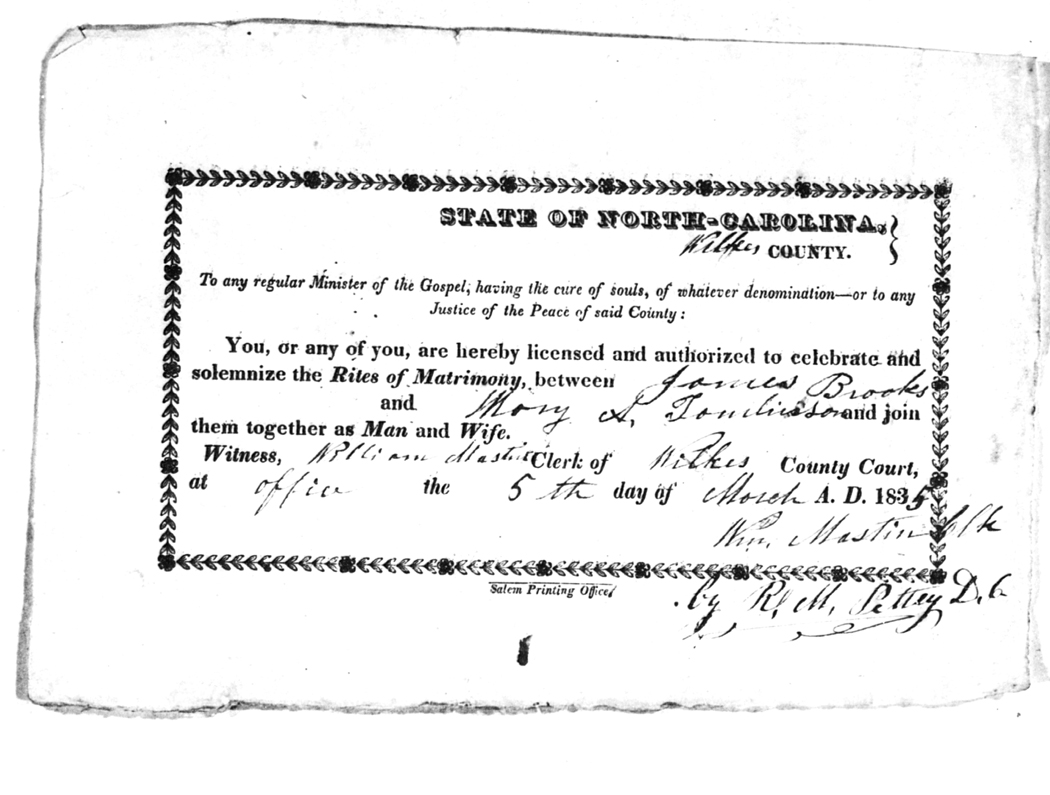 STATE OF NORTH-CAROLINA,
Wilkes COUNTY.
To any regular Minister of the Gospel, having the cure of souls, of whatever denomination—or to any
Justice of the Peace of said County:
You, or any of you, are hereby licensed and authorized to celebrate and
solemnize the Rites of Matrimony, between James Brooks
and Mary A, Tomlinson and join
them together as Man and Wife.
Witness, William Mastin Clerk of Wilkes County Court,
at office the 5th day of March A. D. 1835
Wm. Mastin Clk
by R. M. Pettey D. C
Salem Printing Office,